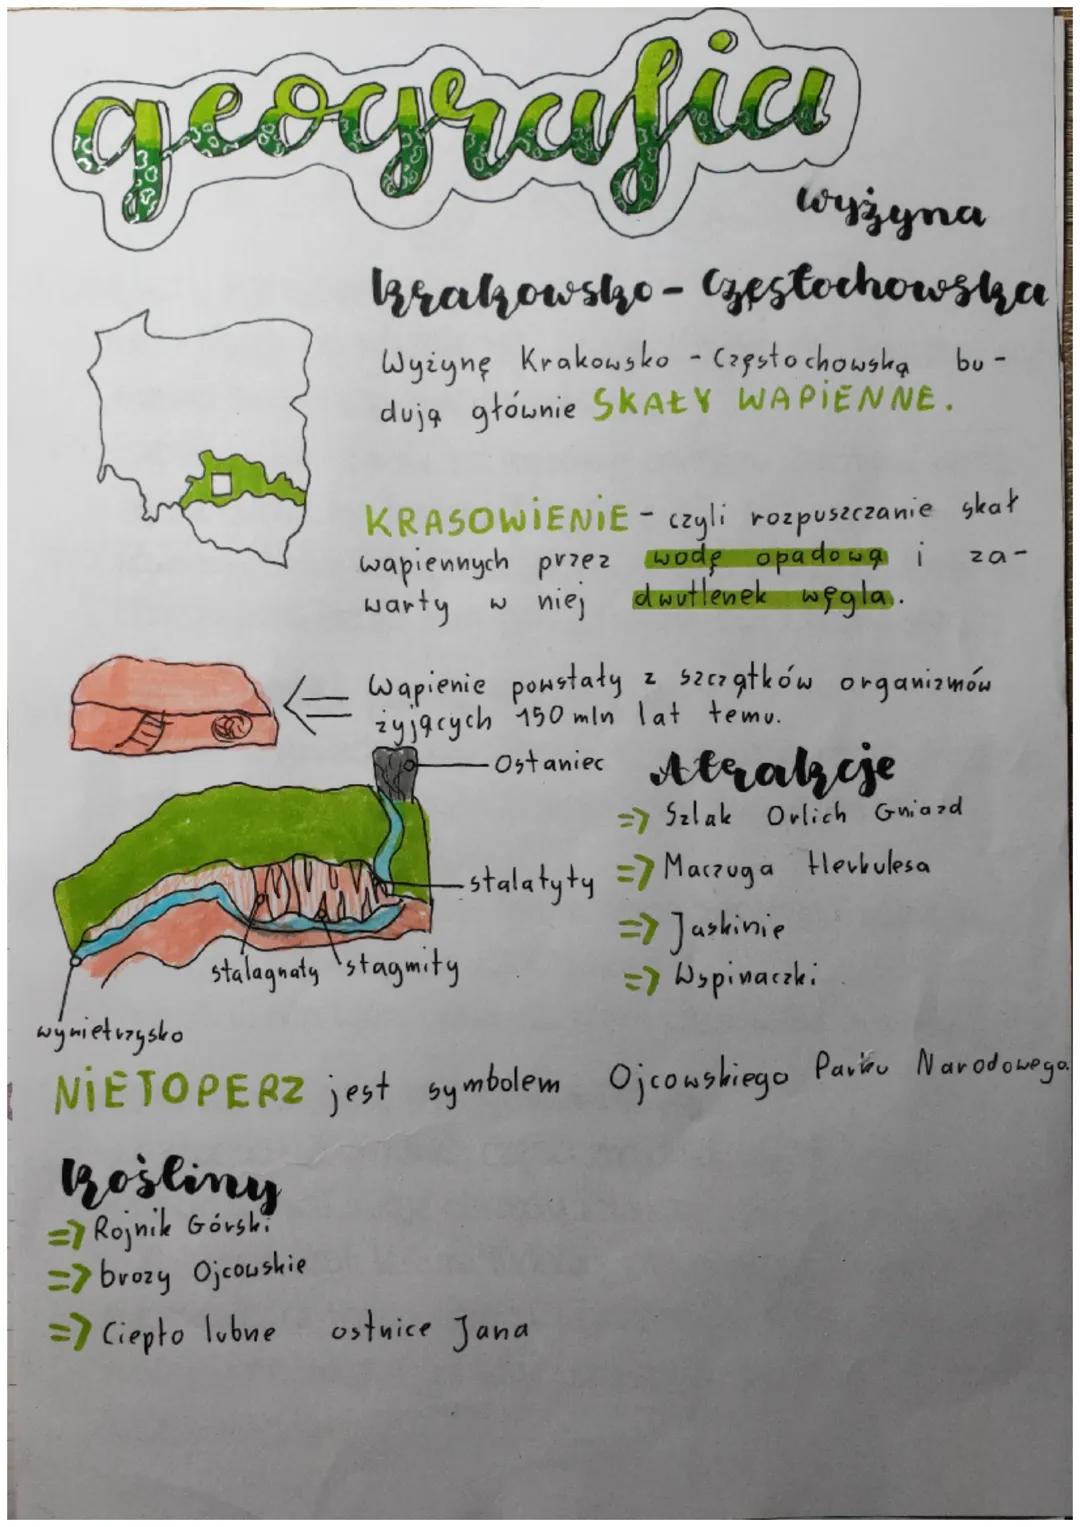 geografia
wyżyna
krakowsko - Częstochowska
Wyżynę Krakowsko - Częstochowską bu-
dują głównie SKAŁY WAPIENNE.
KRASOWIENIE - czyli rozpuszczanie skał
wapiennych przez wodę opadową i za-
warty w niej dwutlenek węgla.
Wapienie powstały z szczątków organizmów
żyjących 150 mln lat temu.
Ostaniec
Atrakcje
=> Szlak Orlich Gniazd
stalatyty
=> Maczuga Herkulesa
=> Jaskinie
stalagnaty stagmity
=> Wspinaczki
wywietrzysko
NIETOPERZ jest symbolem Ojcowskiego Parku Narodowego.
Rośliny
=> Rojnik Górski
=> brozy Ojcowskie
=> Ciepło lubne ostnice Jana